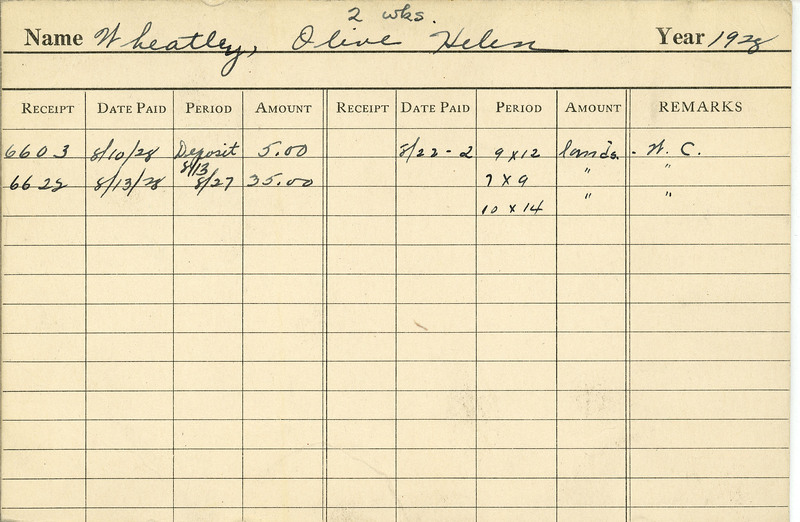 2 wks.
Name Wheatley, Olive Helen Year 1928
RECEIPT DATE PAID PERIOD AMOUNT RECEIPT DATE PAID PERIOD AMOUNT REMARKS
6603 8/10/28 Deposit 5.00 8/22-2 9 x 12 lands. - W. C.
6622 8/13/28 8/13 8/27 35.00 7 x 9 " "
10 x 14 " "